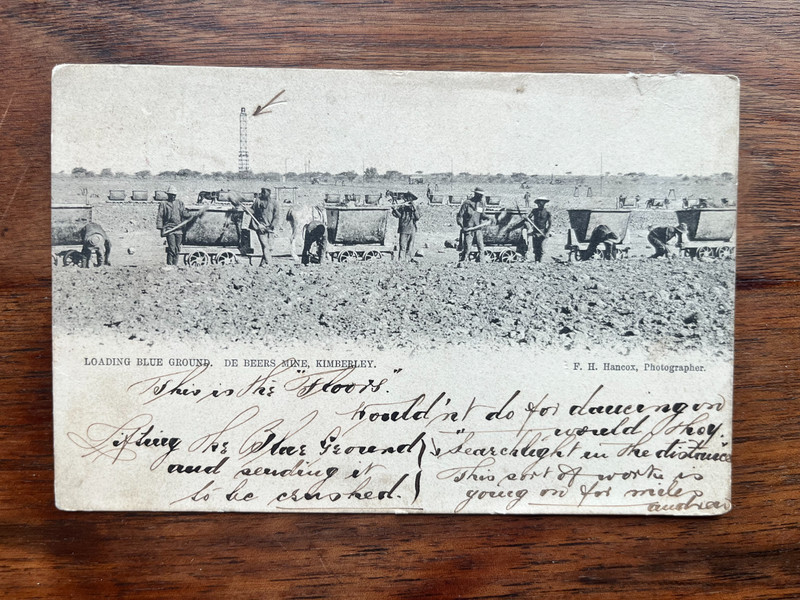 LOADING BLUE GROUND. DE BEERS MINE, KIMBERLEY.
F. H. Hancox, Photographer.
This is the "Floors".
Wouldn't do for dancing on
would they.
Lifting the Blue Ground
and sending it
to be crushed.
"Searchlight in the distance
This sort of work is
going on for miles